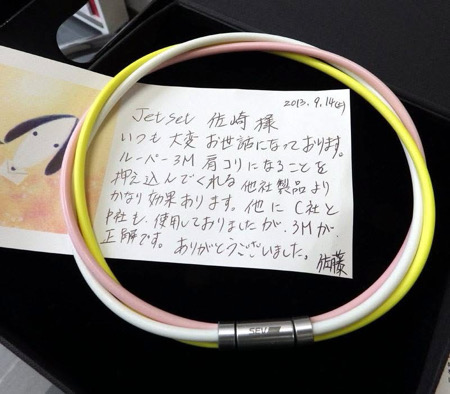 2013.9.14(土)
Jetset 佐崎様
いつも大変お世話になっております。
ルーパー3M 肩コリになることを
押え込んでくれる 他社製品より
かなり効果あります。他に C社と
P社も、使用しておりましたが、3Mが、
正解です。ありがとうございました。
佐藤
SEV